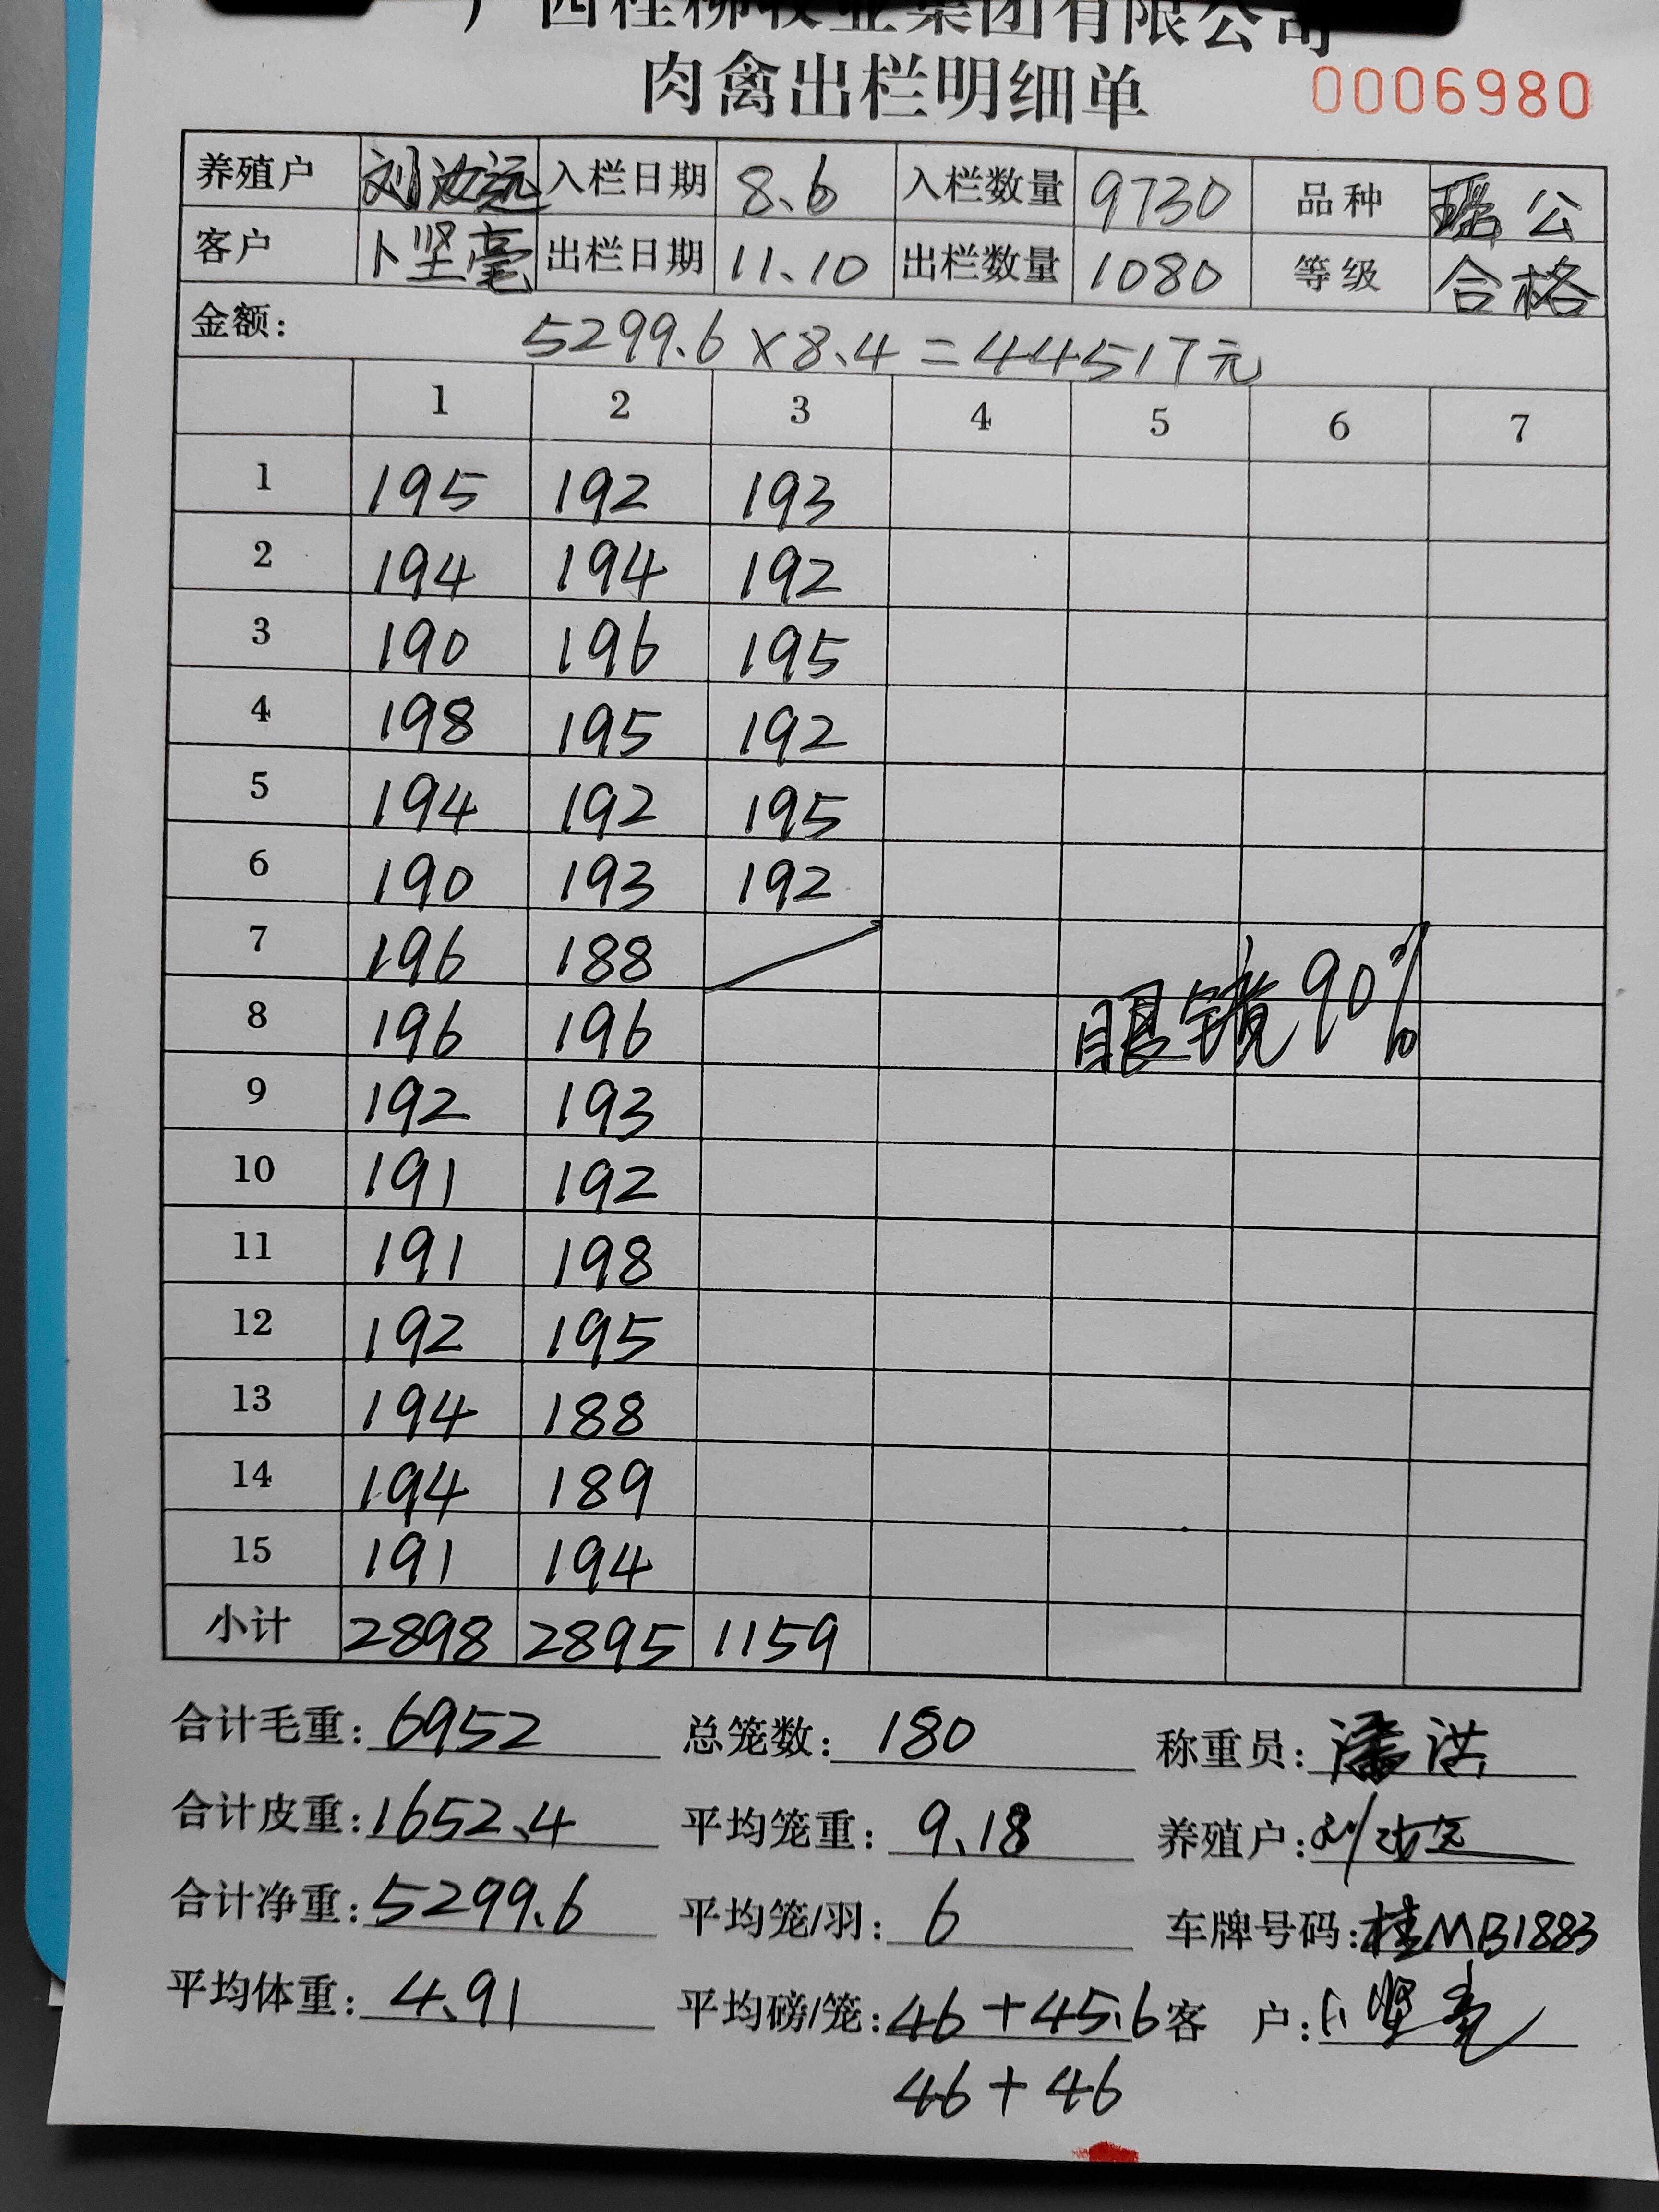 广西桂柳牧业集团有限公司
肉禽出栏明细单 0006980
养殖户 刘汝远 入栏日期 8.6 入栏数量 9730 品种 瑶公
客户 卜坚毫 出栏日期 11.10 出栏数量 1080 等级 合格
金额: 5299.6×8.4=44517元
1 2 3 4 5 6 7
1 195 192 193
2 194 194 192
3 190 196 195
4 198 195 192
5 194 192 195
6 190 193 192
7 196 188
8 196 196 眼镜90%
9 192 193
10 191 192
11 191 198
12 192 195
13 194 188
14 194 189
15 191 194
小计 2898 2895 1159
合计毛重: 6952 总笼数: 180 称重员: 潘洪
合计皮重: 1652.4 平均笼重: 9.18 养殖户:
合计净重: 5299.6 平均笼/羽: 6 车牌号码: 桂MB1883
平均体重: 4.91 平均磅/笼: 46+45.6 客 户:
46+46